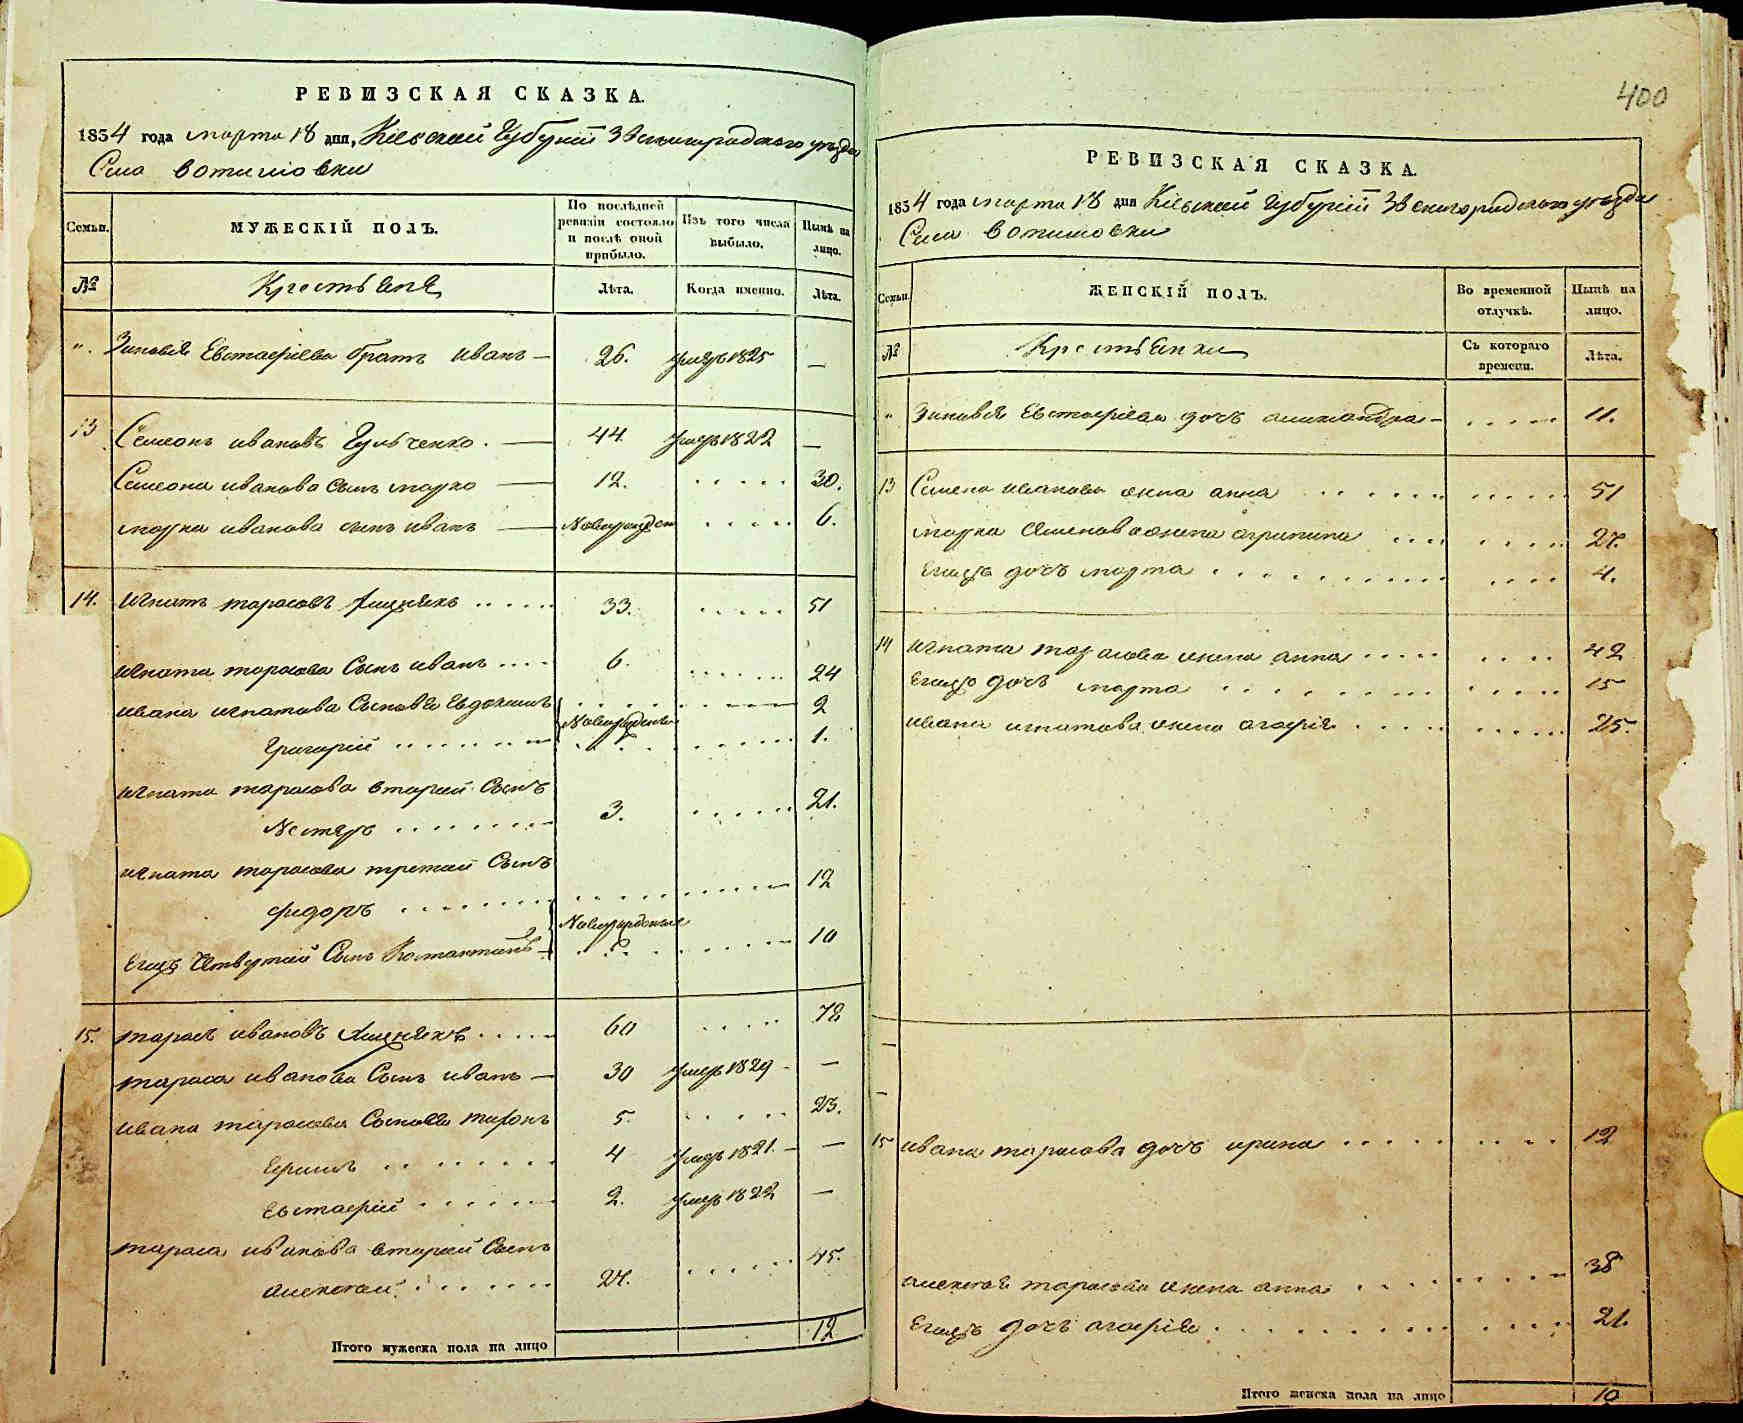 РЕВИЗСКАЯ СКАЗКА.
1834 года марта 18 дня, Кіевской Губерніи Звенигородского уезда
Села
Семьи.
МУЖЕСКІЙ ПОЛЪ.
По послѣдней ревизіи состояло и послѣ оной прибыло.
Изъ того числа выбыло.
Нынѣ на лицо.
№
Крестьяне
Лѣта.
Когда именно.
Лѣта.
". Зиновія Евстафіева братъ Иванъ — 26. умеръ 1825 —
13 Семенъ Ивановъ — 44 умеръ 1822 —
Семена Иванова сынъ Марко — 12. 30.
Марка Иванова сынъ Иванъ — Новорожден 6.
14. Игнатъ Тарасовъ 33. 51
Игната Тарасова Сынъ Иванъ 6. 24
Ивана Игнатова Сыновья Евдокимъ 2
Новорожденные
Григорій 1.
Игната Тарасова вторый Сынъ
Нестеръ 3. 21.
Игната Тарасова третій Сынъ
Фидоръ 12
Новорожденные
Егожъ Четвертый Сынъ Костантинъ 10
15. Тарасъ Ивановъ 60 78
Тараса Иванова Сынъ Иванъ — 30 умеръ 1829 —
Ивана Тарасова Сыновья 5. 23.
4 умеръ 1821. —
Евстафій 2. умеръ 1822 —
Тараса Иванова вторый Сынъ
Алексей 27. 45.
Итого мужеска пола на лицо 12
400
РЕВИЗСКАЯ СКАЗКА.
1834 года марта 18 дня Кіевской Губерніи Звенигородского уезда
Села
Семьи.
ЖЕНСКІЙ ПОЛЪ.
Во временной отлучкѣ.
Нынѣ на лицо.
№
Крестьянки
Съ котораго времени.
Лѣта.
" Зиновія Евстафіева дочъ Александра — 11.
13 Семена Иванова жена Анна 51
Марка Семенова жена Агрипина 27.
Егожъ дочъ Марта 4.
14 Игната Тарасова жена Анна 42
Егожъ дочъ Марта 15
Ивана Игнатова жена Агафія 25.
15 Ивана Тарасова дочъ Ирина 12
Алексея Тарасова жена Анна 38
Егожъ дочъ Агафія 21.
Итого женска пола на лицо 10